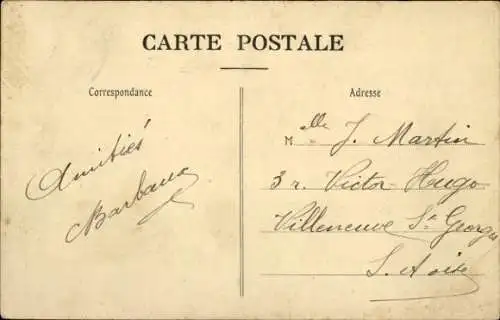 CARTE POSTALE
Correspondance
Adresse
Amitiés
Barbaux
Mlle J. Martin
3 r. Victor Hugo
Villeneuve St Georges
S. et Oise